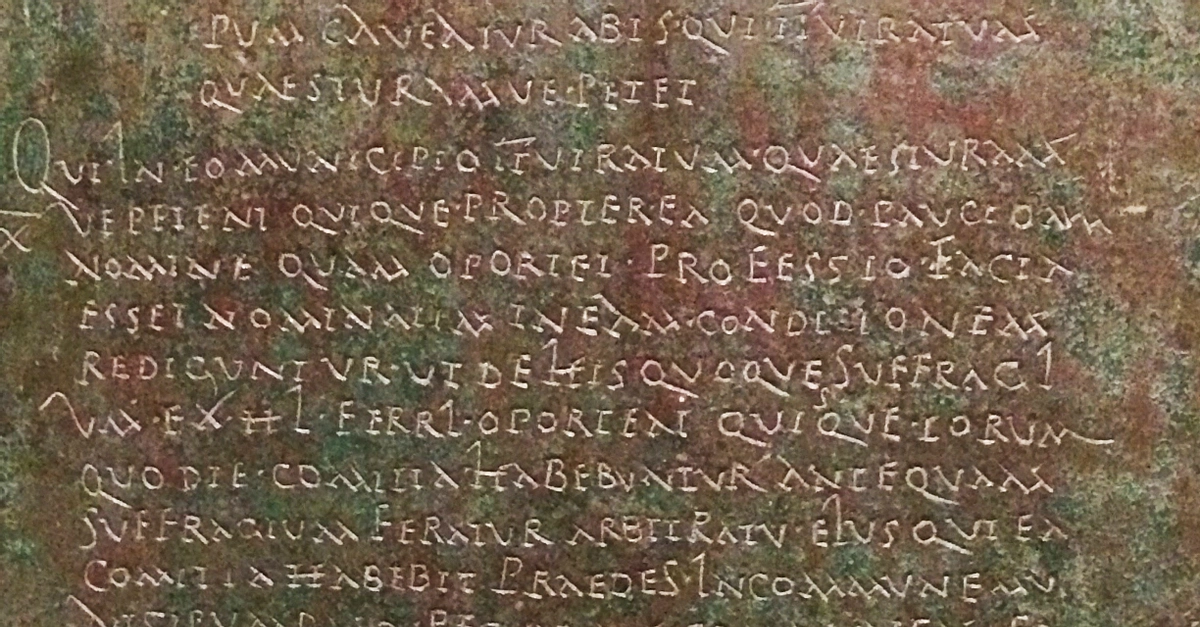 PUM CAVEATUR AB IS QUI II VIRATUM
QUAESTURAMVE PETET
QUI IN EO MUNICIPIO II VIRATUM QUAESTURAM
VE PETENT QUIQUE PROPTEREA QUOD PAUCIOAM
X
NOMINE QUAM OPORTET PROFESSIO FACTA
ESSET NOMINATIM IN EAM CONDICIONEM
REDIGUNTUR UT DE HIS QUOQUE SUFFRAGI
UM EX H L FERRI OPORTEAT QUISQUE EORUM
QUO DIE COMITIA HABEBUNTUR ANTEQUAM
SUFFRAGIUM FERATUR ARBITRATU EIUS QUI EA
COMITIA HABEBIT PRAEDES IN COMMUNE MU